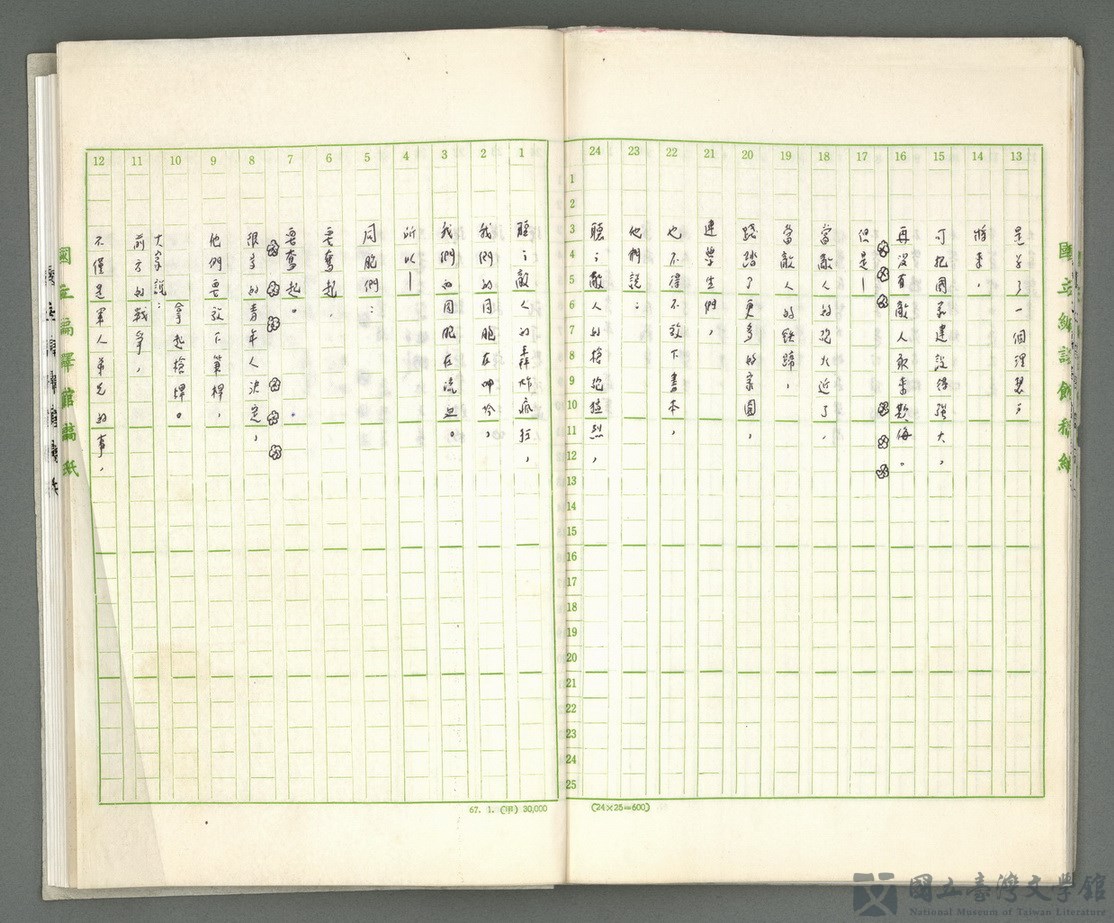 是為了一個理想；
將來，
可把國家建設得強大，
再沒有敵人敢來欺侮。
但是—
當敵人的砲火近了，
當敵人的鐵蹄，
踐踏了更多的家園，
連學生們，
也不得不放下書本，
他們說：
聽；敵人的槍砲猛烈，
聽；敵人的轟炸瘋狂，
我們的同胞在呻吟，
我們的同胞在流血。
所以—
同胞們：
要奮起，
要奮起。
很多的青年人決定，
他們要放下筆桿，
拿起槍桿。
大家說：
前方的戰爭，
不僅是軍人弟兄的事，
13
14
15
16
17
18
19
20
21
22
23
24
1
2
3
4
5
6
7
8
9
10
11
12
1
2
3
4
5
6
7
8
9
10
11
12
13
14
15
16
17
18
19
20
21
22
23
24
25
國立編譯館稿紙
國立編譯館稿紙
(24×25=600)
67. 1. (甲) 30,000
國立臺灣文學館
National Museum of Taiwan Literature